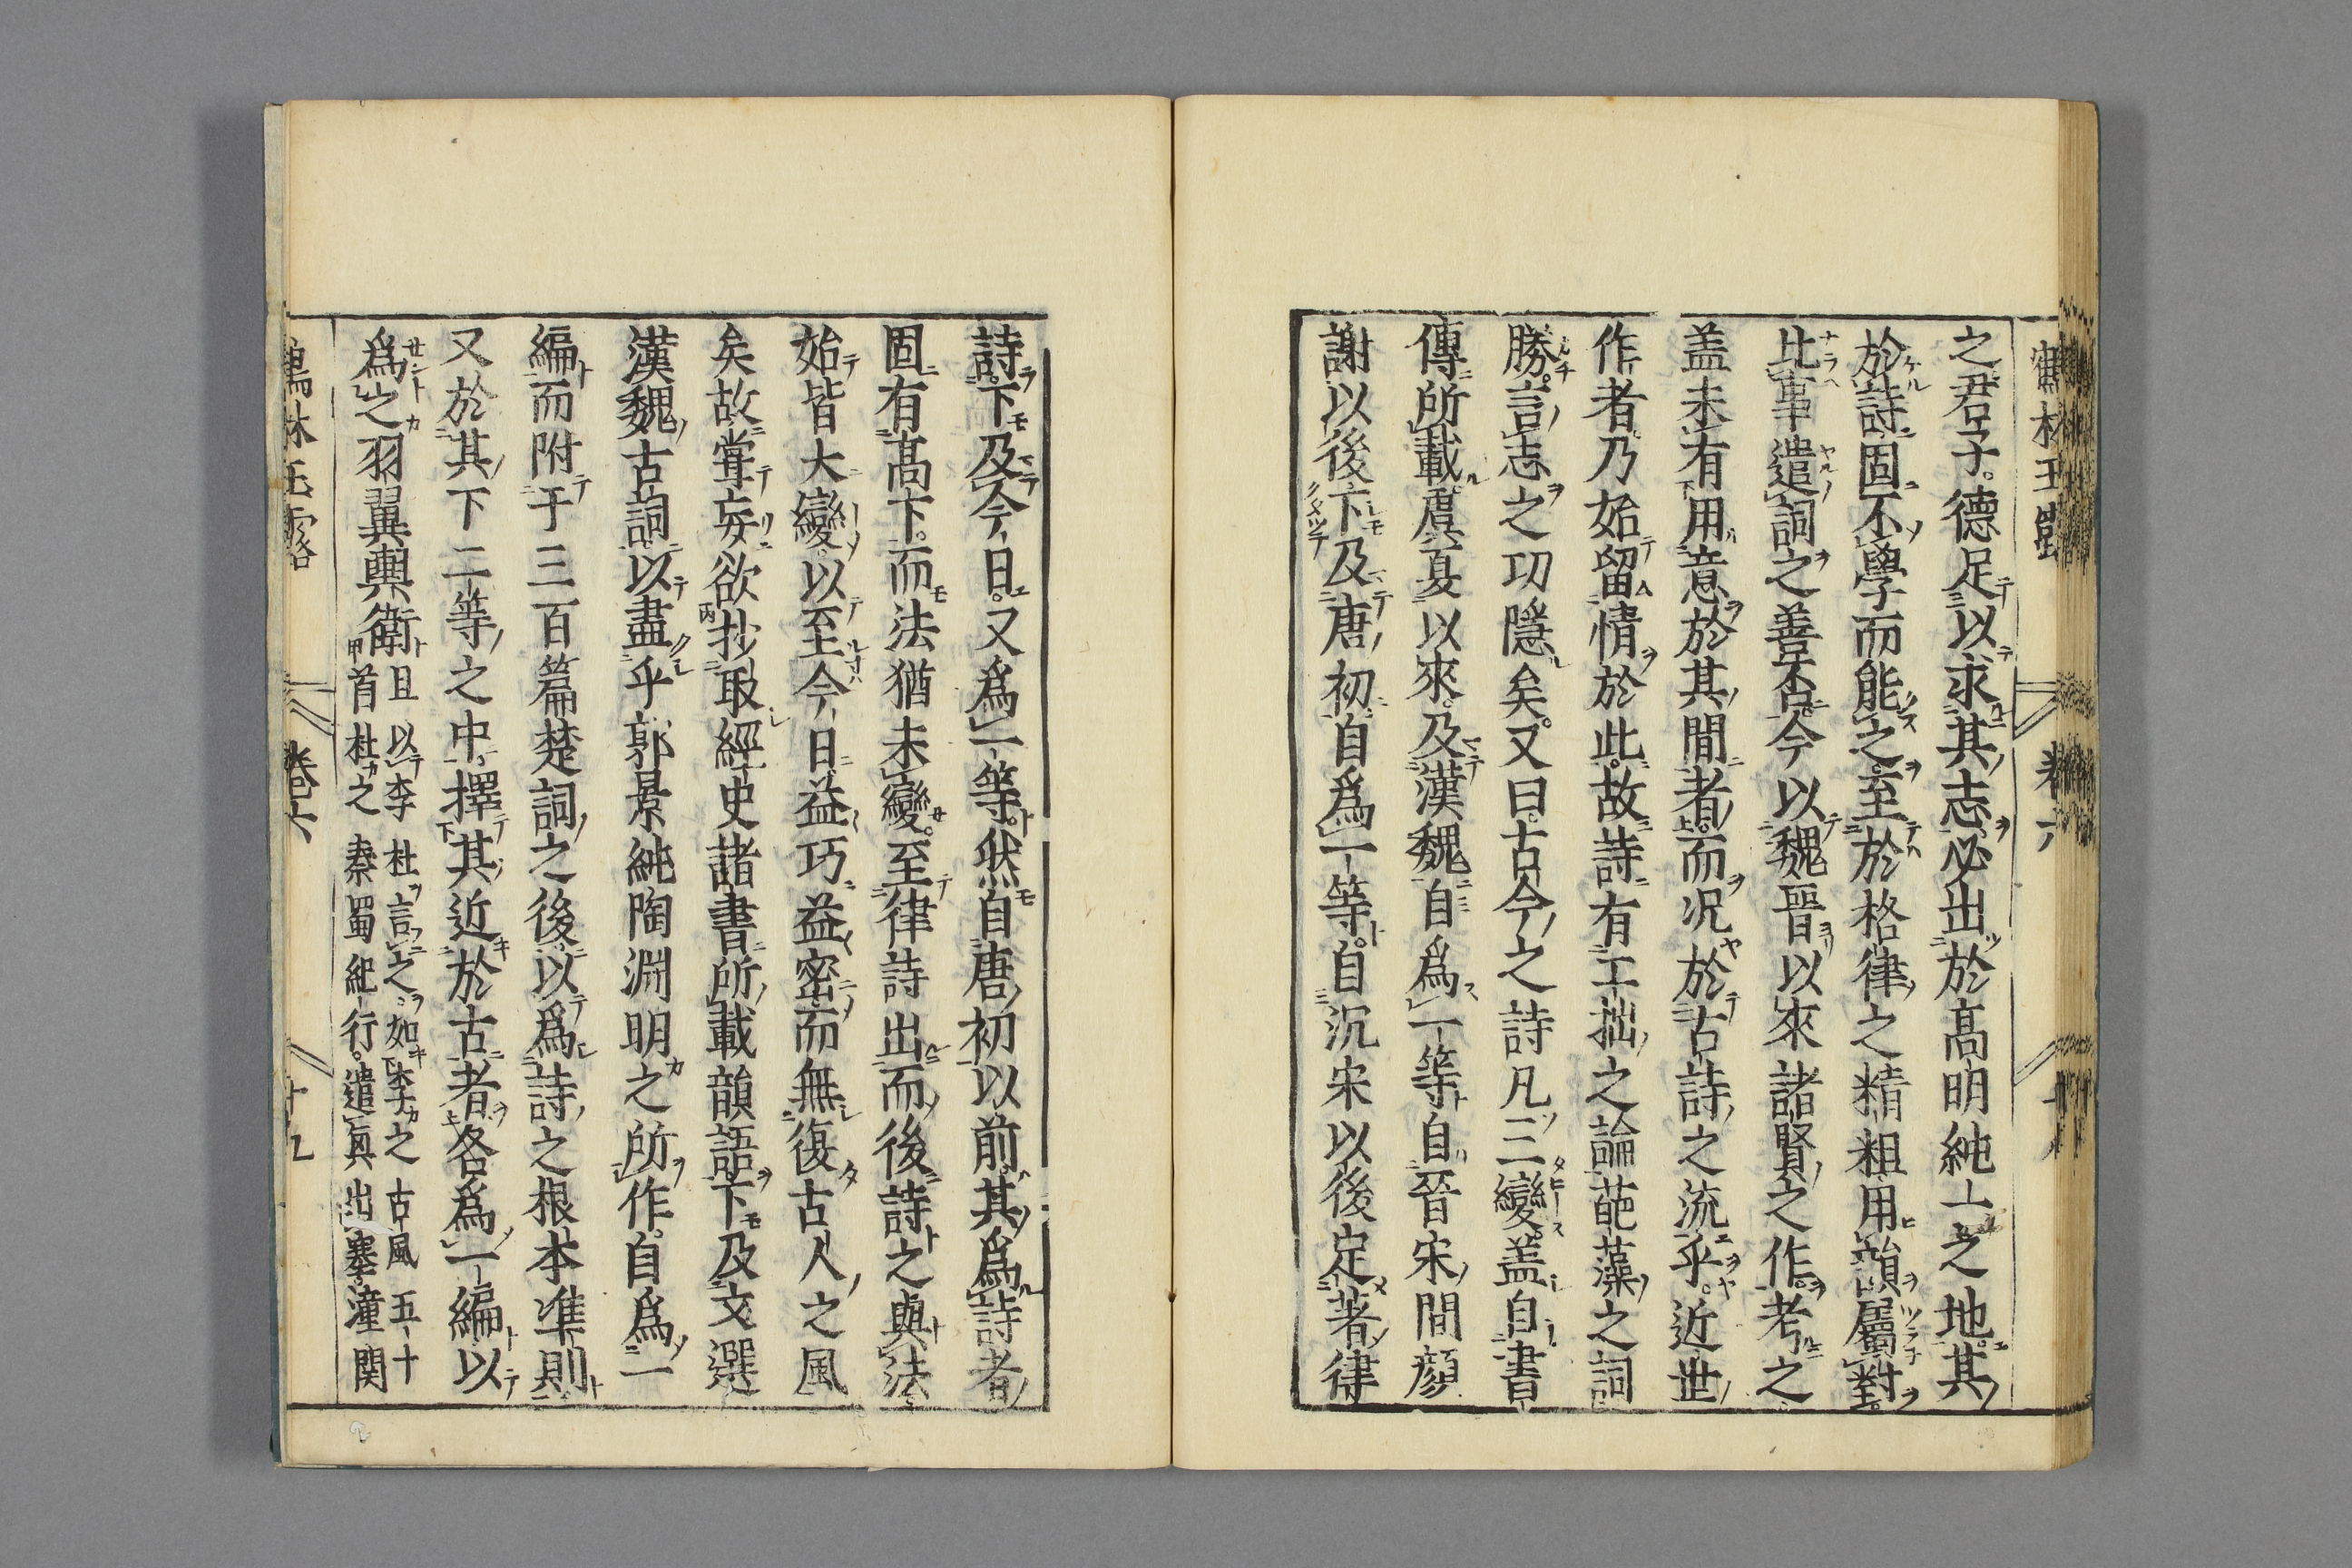 之君子。德足以求其志必出於髙明純一之地。其
於詩固不學而能之。至於格律之精粗用韻屬對。
比事遣詞之善否。今以魏晉以來諸賢之作。考之
盖未有用意於其間者。而况於古詩之流乎。近世
作者。乃始留情於此。故詩有工拙之論葩藻之詞
勝。言志之功隱矣。又曰。古今之詩凡三變。盖自書
傳所載虞夏以來。及漢魏自爲一等。自晉宋間顔
謝以後下及唐初。自爲一等。自沉宋以後定著律
詩。下及今日。又爲一等。然自唐初以前。其爲詩者
固有髙下。而法猶未變。至律詩出而後詩之與法
始皆大變以至今日益巧益密而無復古人之風
矣故甞妄欲抄取經史諸書所載韻語下及文選
漢魏古詞以盡乎郭景純陶淵明之所作。自爲一
編而附于三百篇楚詞之後以爲詩之根本準則
又於其下二等之中擇其近於古者各爲一編以
爲之羽翼輿衛
且以李杜言之。如李之古風五十
首杜之秦蜀紀行。遣興出塞潼関
卷六